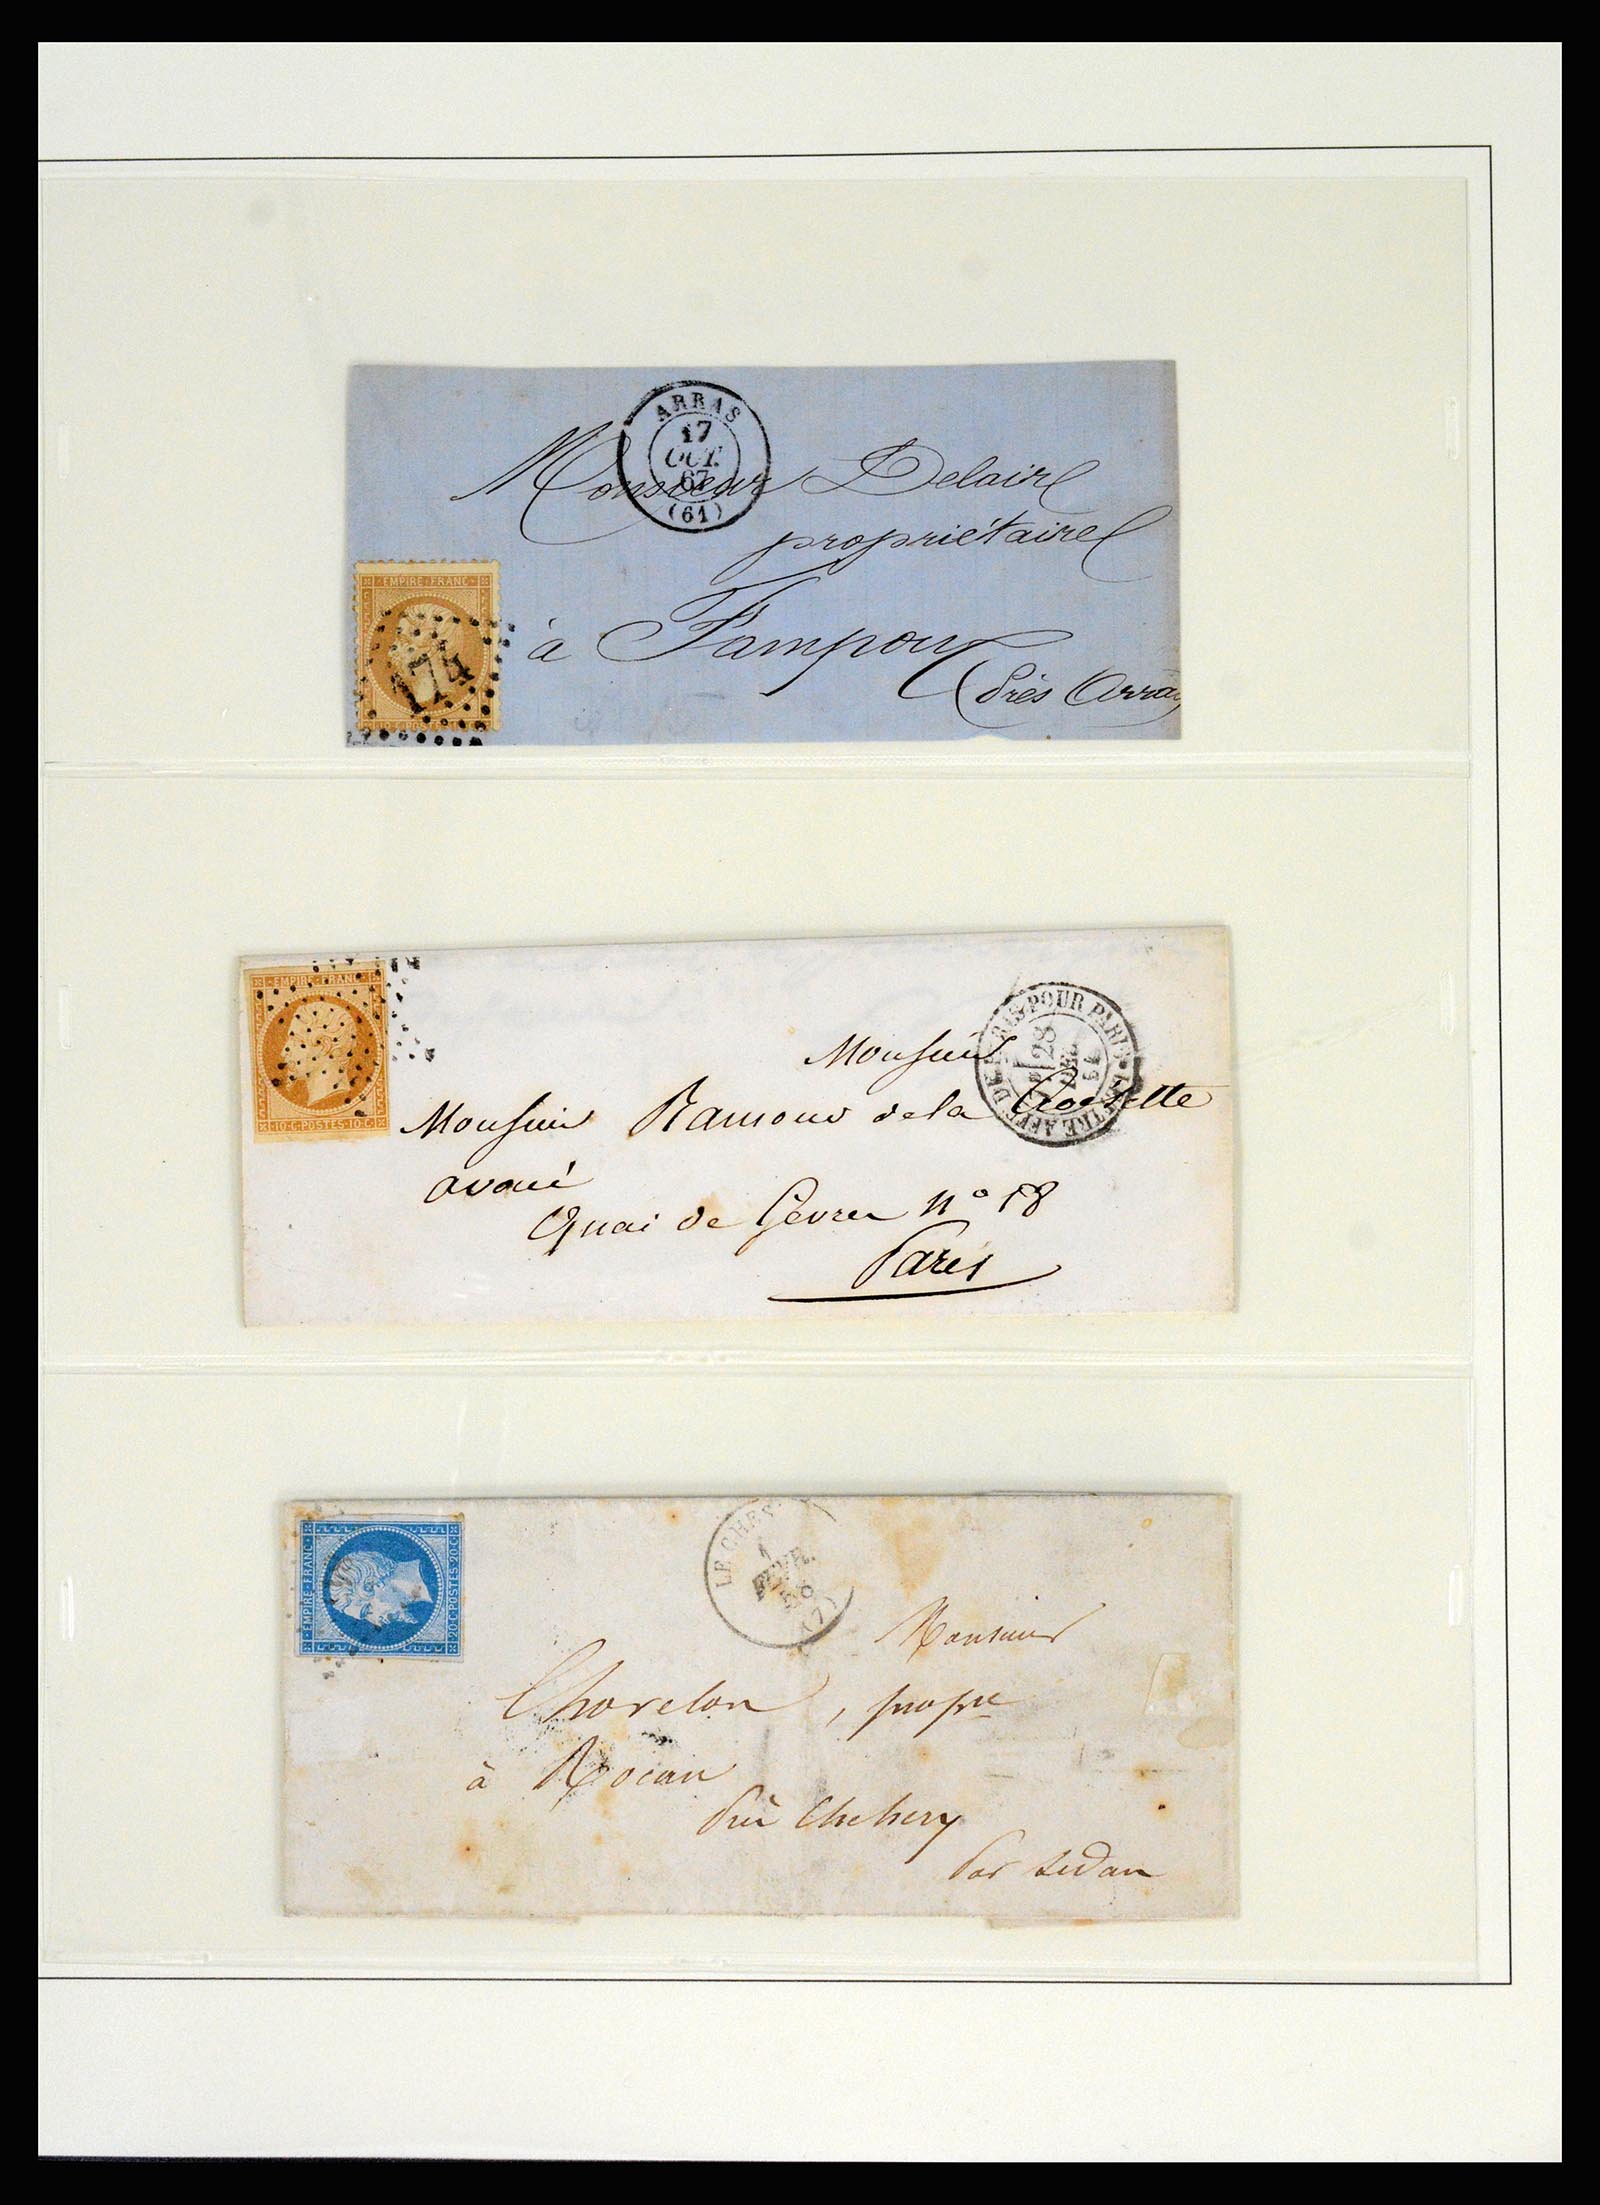 ARRAS
17
OCT.
67
(61)
Monsieur Delaire
propriétaire
EMPIRE FRANC
174
10 C POSTES 10 C
à Fampoux
(Près Arras
EMPIRE FRANC
10 C POSTES 10 C
DE PARIS POUR PARIS LETTRE AFF.
28
DEC
54
Monsieur
Monsieur Ramond de la Croisette
avoué
Quai de Gèvres N° 18
Paris
EMPIRE FRANC
20 C POSTES 20 C
LE CHES
1
FEVR.
58
(7)
Monsieur
Chorelon, propre
à Rocan
Près Chehery
Par Sedan